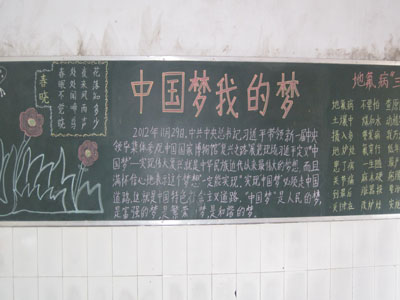 春晓
春眠不觉晓
处处闻啼鸟
夜来风雨声
花落知多少
中国梦我的梦
2012年11月29日,中共中央总书记习近平带领新一届中央
领导集体来观中国国家博物馆"复兴之路"展览现场习近平定义"中
国梦"—实现伟大复兴就是中华民族近代以来最伟大的梦想,而且
满怀信心地表示这个梦想"一定能实现"。实现"中国梦"必须走中国
道路,这就是中国特色社会主义道路。"中国梦"是人民的梦,
是富强的梦,是繁荣 梦,是和谐的梦。
地氟病"三
地氟病
土壤中
摄入